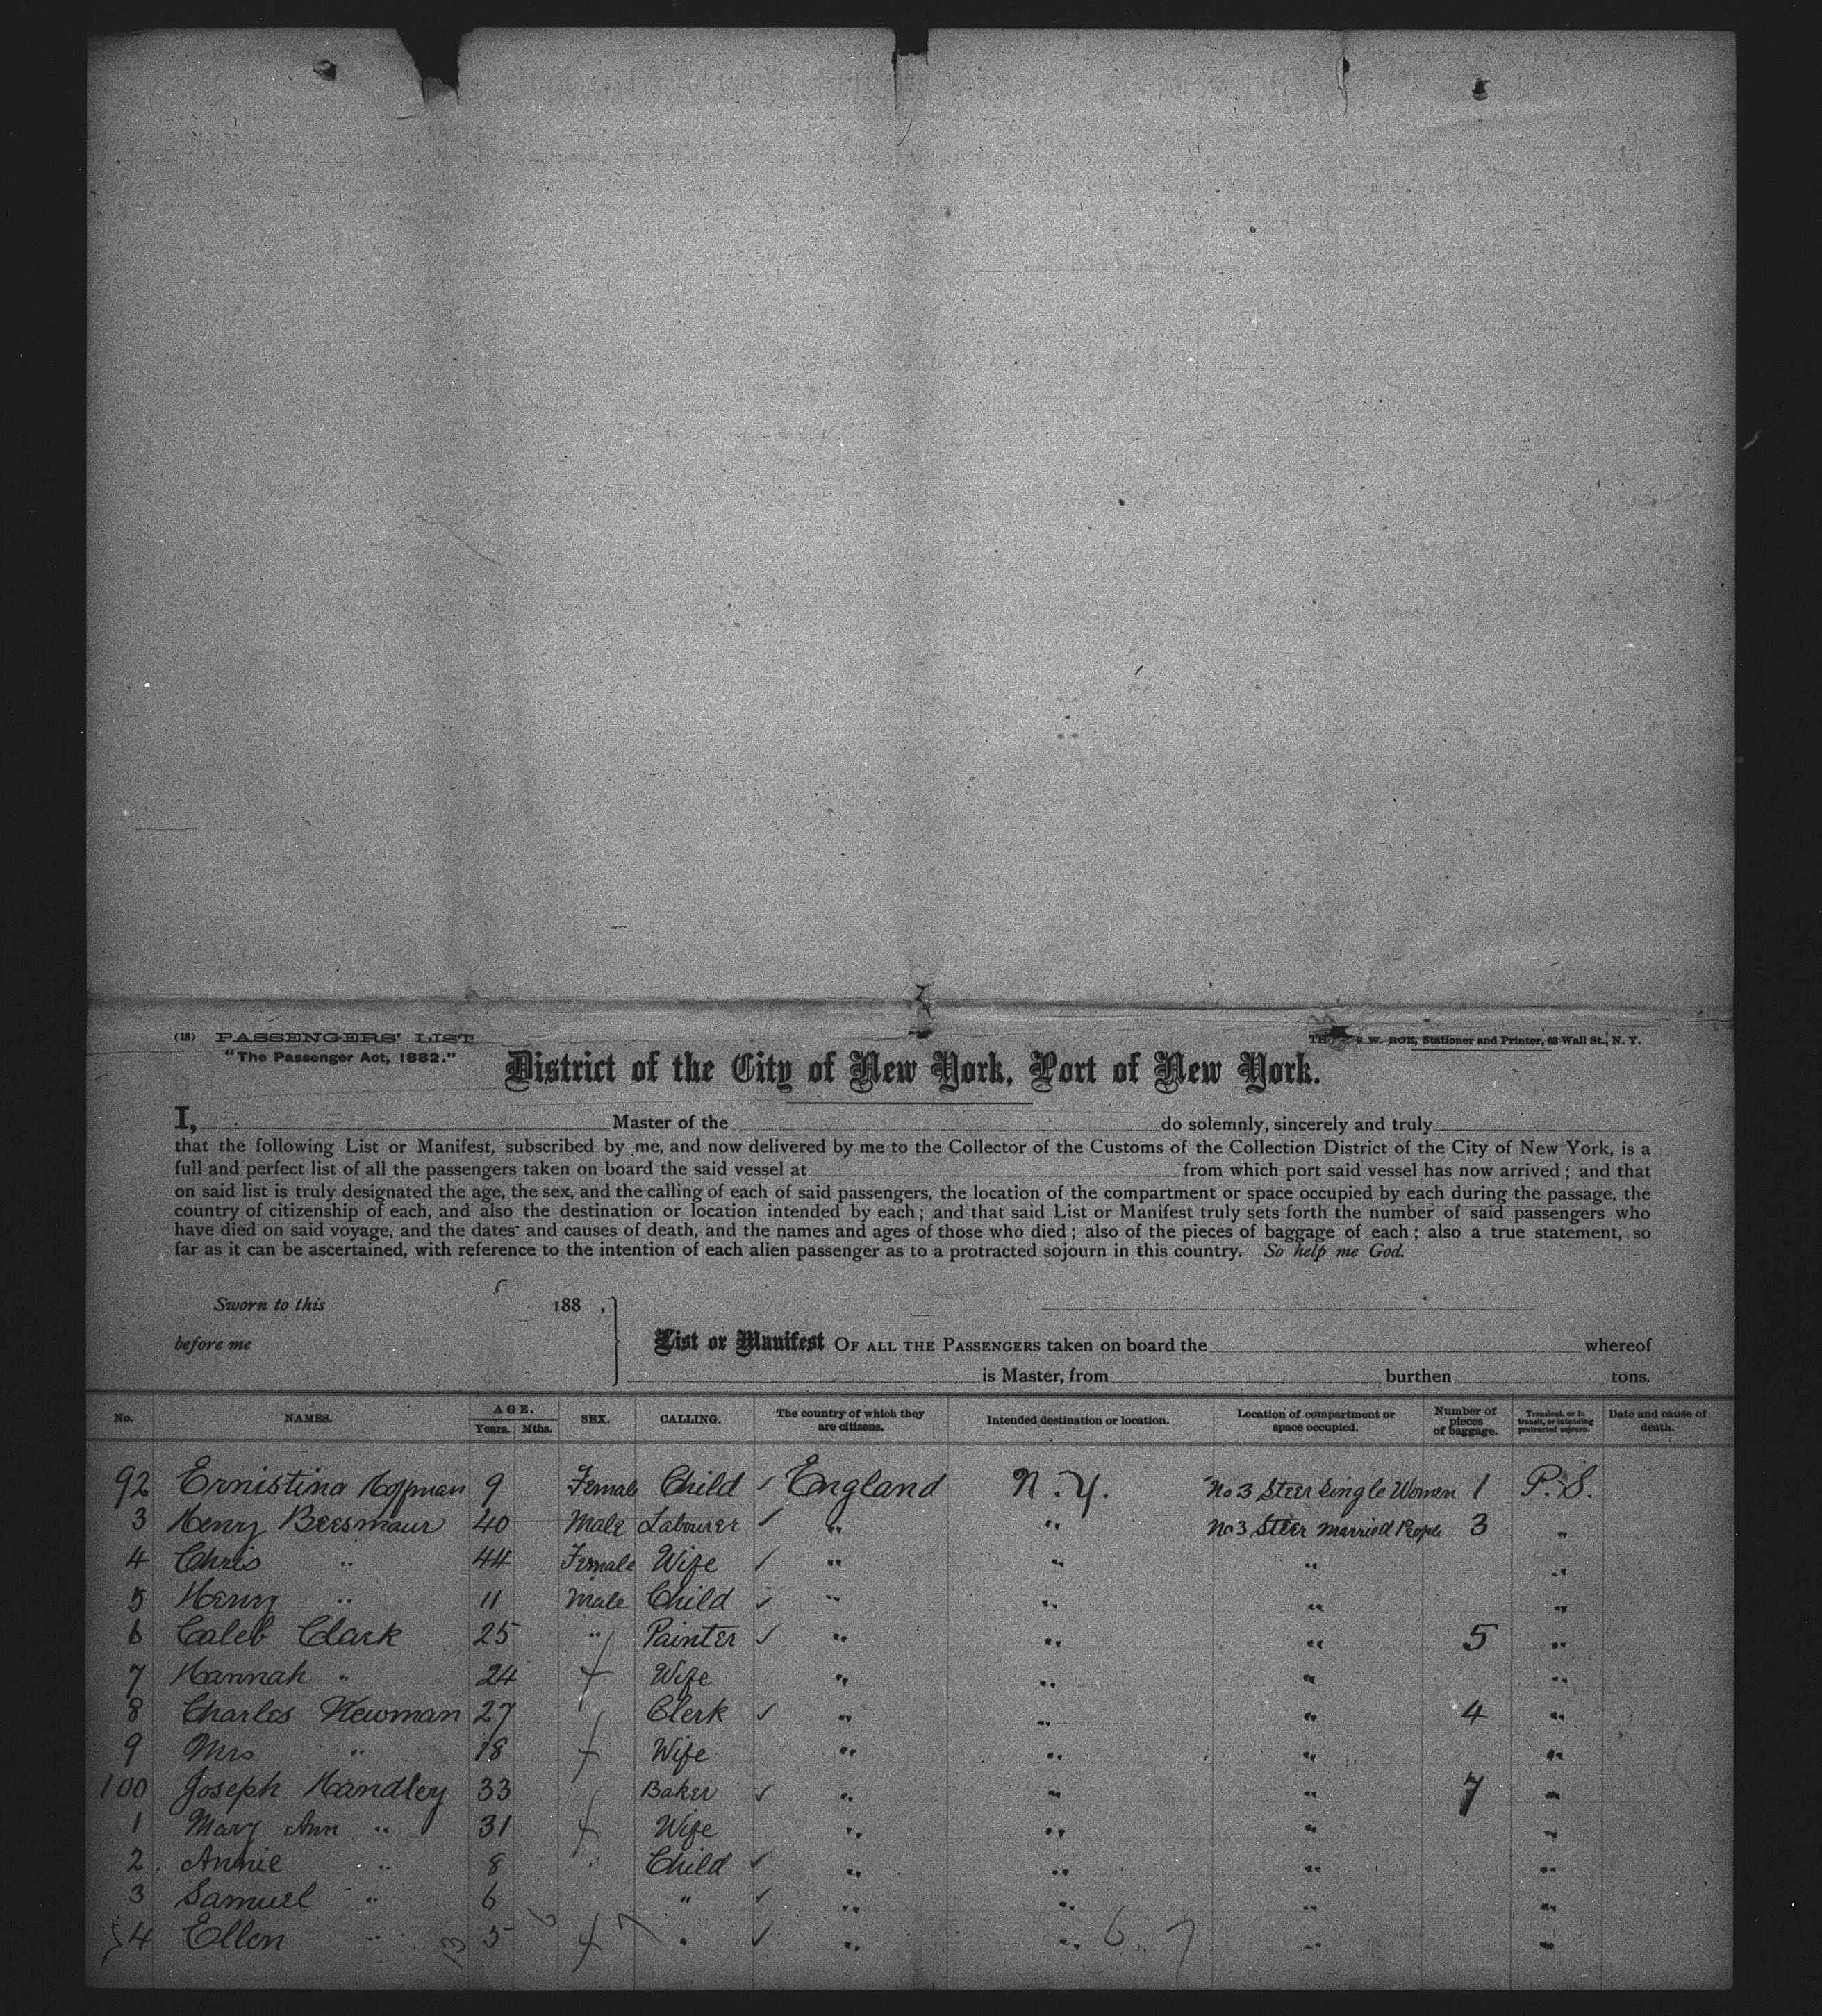 (18) PASSENGERS' LIST
"The Passenger Act, 1882."
W. ROE, Stationer and Printer, 63 Wall St., N. Y.
District of the City of New York, Port of New York.
I, Master of the do solemnly, sincerely and truly
that the following List or Manifest, subscribed by me, and now delivered by me to the Collector of the Customs of the Collection District of the City of New York, is a
full and perfect list of all the passengers taken on board the said vessel at from which port said vessel has now arrived; and that
on said list is truly designated the age, the sex, and the calling of each of said passengers, the location of the compartment or space occupied by each during the passage, the
country of citizenship of each, and also the destination or location intended by each; and that said List or Manifest truly sets forth the number of said passengers who
have died on said voyage, and the dates and causes of death, and the names and ages of those who died; also of the pieces of baggage of each; also a true statement, so
far as it can be ascertained, with reference to the intention of each alien passenger as to a protracted sojourn in this country. So help me God.
Sworn to this 188 ,
before me
List or Manifest OF ALL THE PASSENGERS taken on board the whereof
is Master, from burthen tons.
No. NAMES. AGE. Years. Mths. SEX. CALLING. The country of which they are citizens. Intended destination or location. Location of compartment or space occupied. Number of pieces of baggage. Transient, or in transit, or intending protracted sojourn. Date and cause of death.
92 Ernistina Hoffman 9 Female Child ✓ England N.Y. No 3 Steer Single Women 1 P.S.
3 Henry Beesmaur 40 Male Labourer ✓ " " No 3 Steer Married People 3 "
4 Chris " 44 Female Wife ✓ " " " "
5 Henry " 11 Male Child ✓ " " " "
6 Caleb Clark 25 " Painter ✓ " " " 5 "
7 Hannah " 24 Wife " " " "
8 Charles Newman 27 Clerk ✓ " " " 4 "
9 Mrs " 18 Wife " " " "
100 Joseph Handley 33 Baker ✓ " " " 7 "
1 Mary Ann " 31 Wife " " " "
2 Annie " 8 " Child ✓ " " " "
3 Samuel " 6 " ✓ " " " "
4 Ellen " 13 5 6 7 " ✓ " " 6 7 " "